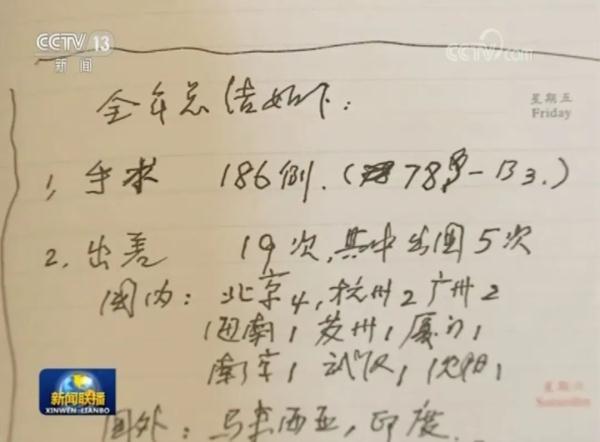 CCTV 13
新闻
CCTV.com
全年总结如下:
星期五
Friday
1, 手术 186例. ( 78 -B3.)
2. 出差 19次,其中出国5次
国内: 北京4, 杭州2 广州2
海南1 苏州1 厦门1
南京1 武汉1
星期六
Saturday
新闻联播
XINWEN LIANBO
国外: 马来西亚, 印度